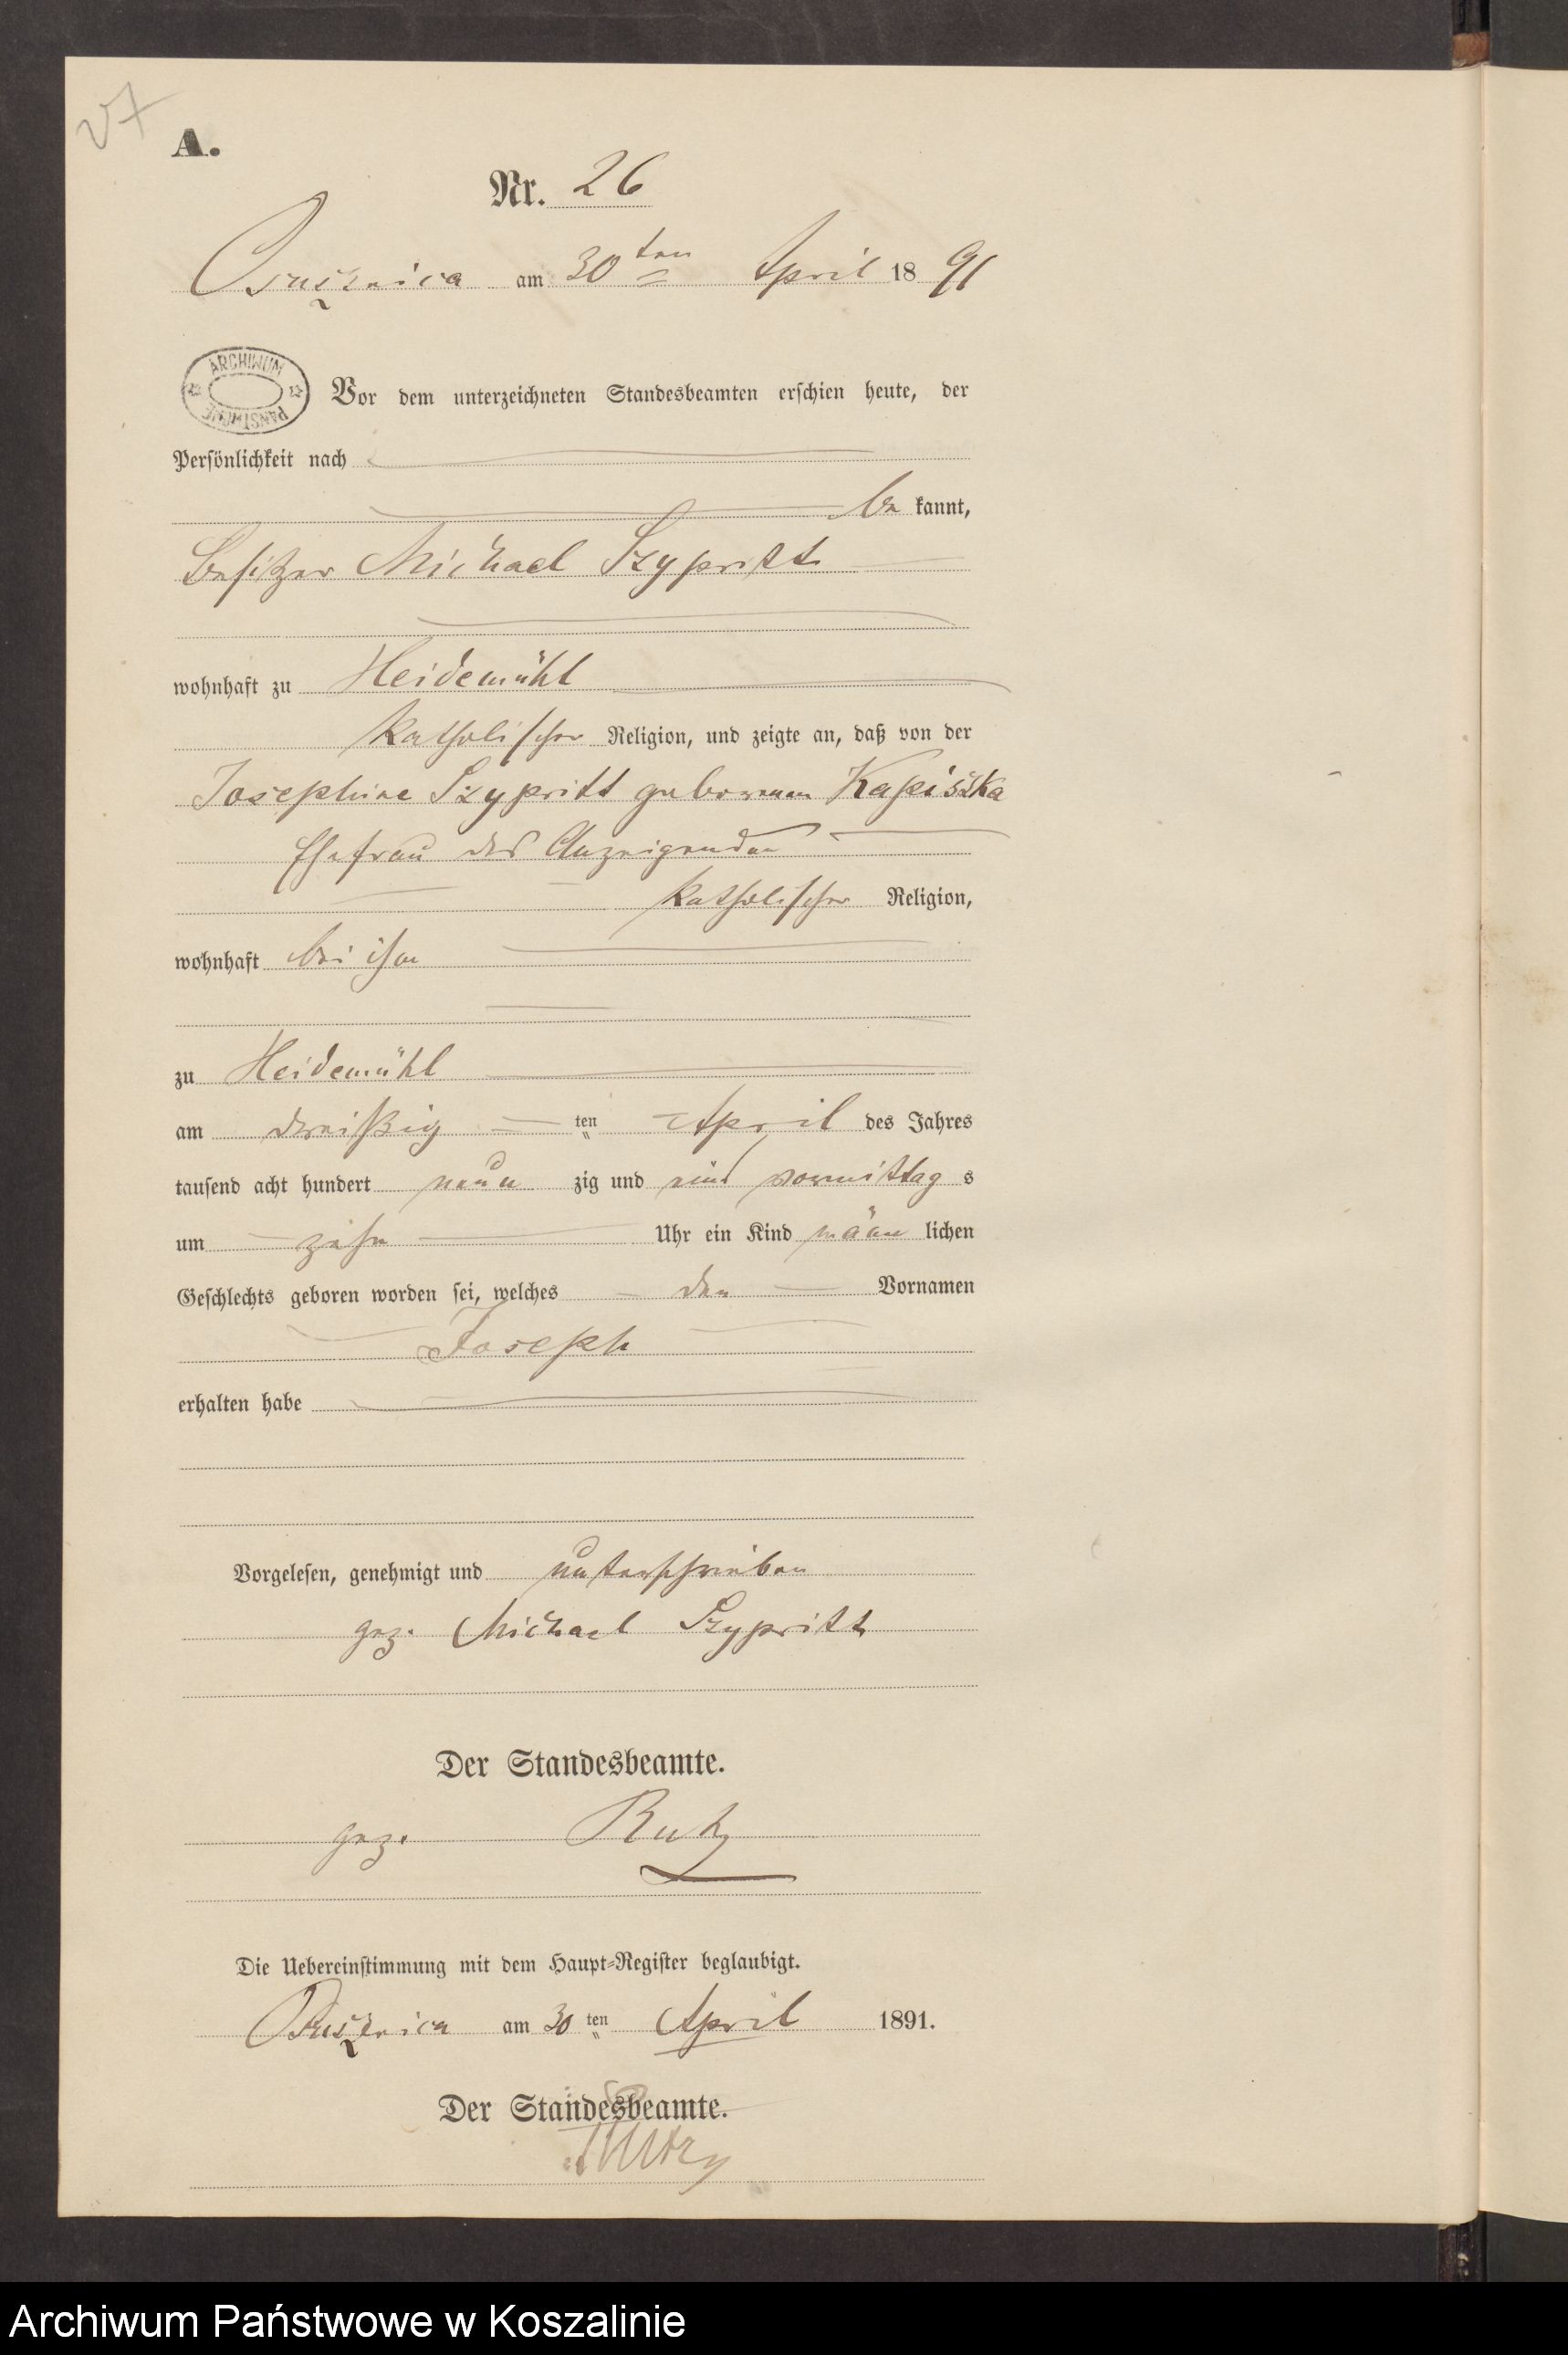 27
A.
Nr. 26
Osusznica am 30ten April 1891
ARCHIWUM PAŃSTWOWE
Vor dem unterzeichneten Standesbeamten erschien heute, der
Persönlichkeit nach
be kannt,
Besitzer Michael Szypritt
wohnhaft zu Heidemühl
katholischer Religion, und zeigte an, daß von der
Josephine Szypritt geborenen Kapiszka
Ehefrau des Anzeigenden
katholischer Religion,
wohnhaft bei ihm
zu Heidemühl
am dreißig ten April des Jahres
tausend acht hundert neun zig und eins vormittag s
um zehn Uhr ein Kind männ lichen
Geschlechts geboren worden sei, welches den Vornamen
Joseph
erhalten habe
Vorgelesen, genehmigt und unterschrieben
gez. Michael Szypritt
Der Standesbeamte.
gez. Rutz
Die Uebereinstimmung mit dem Haupt-Register beglaubigt.
Osusznica am 30 ten April 1891.
Der Standesbeamte.
Archiwum Państwowe w Koszalinie